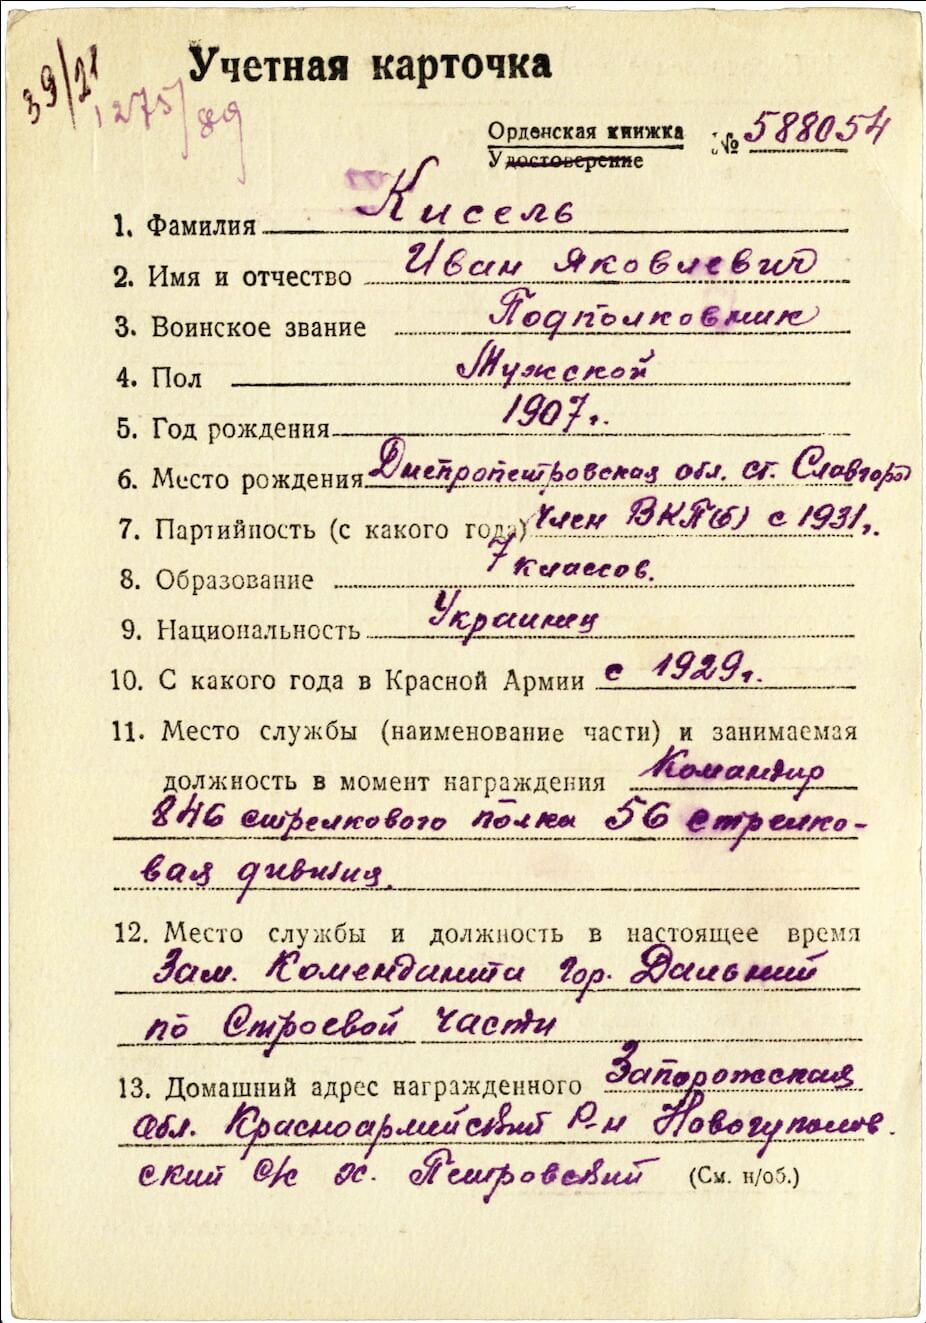 39/21
1275/89
Учетная карточка
Орденская книжка № 588054
Удостоверение
1. Фамилия Кисель
2. Имя и отчество Иван Яковлевич
3. Воинское звание Подполковник
4. Пол Мужской
5. Год рождения 1907 г.
6. Место рождения Днепропетровская обл. ст. Славгород
7. Партийность (с какого года) Член ВКП(б) с 1931 г.
8. Образование 7 классов.
9. Национальность Украинец
10. С какого года в Красной Армии с 1929 г.
11. Место службы (наименование части) и занимаемая
должность в момент награждения Командир
846 стрелкового полка 56 стрелко-
вая дивизия.
12. Место службы и должность в настоящее время
Зам. Коменданта гор. Дальний
по Строевой части
13. Домашний адрес награжденного Запорожская
обл. Красноармийский Р-н Новогуполов
ский с/с х. Петровский (См. н/об.)